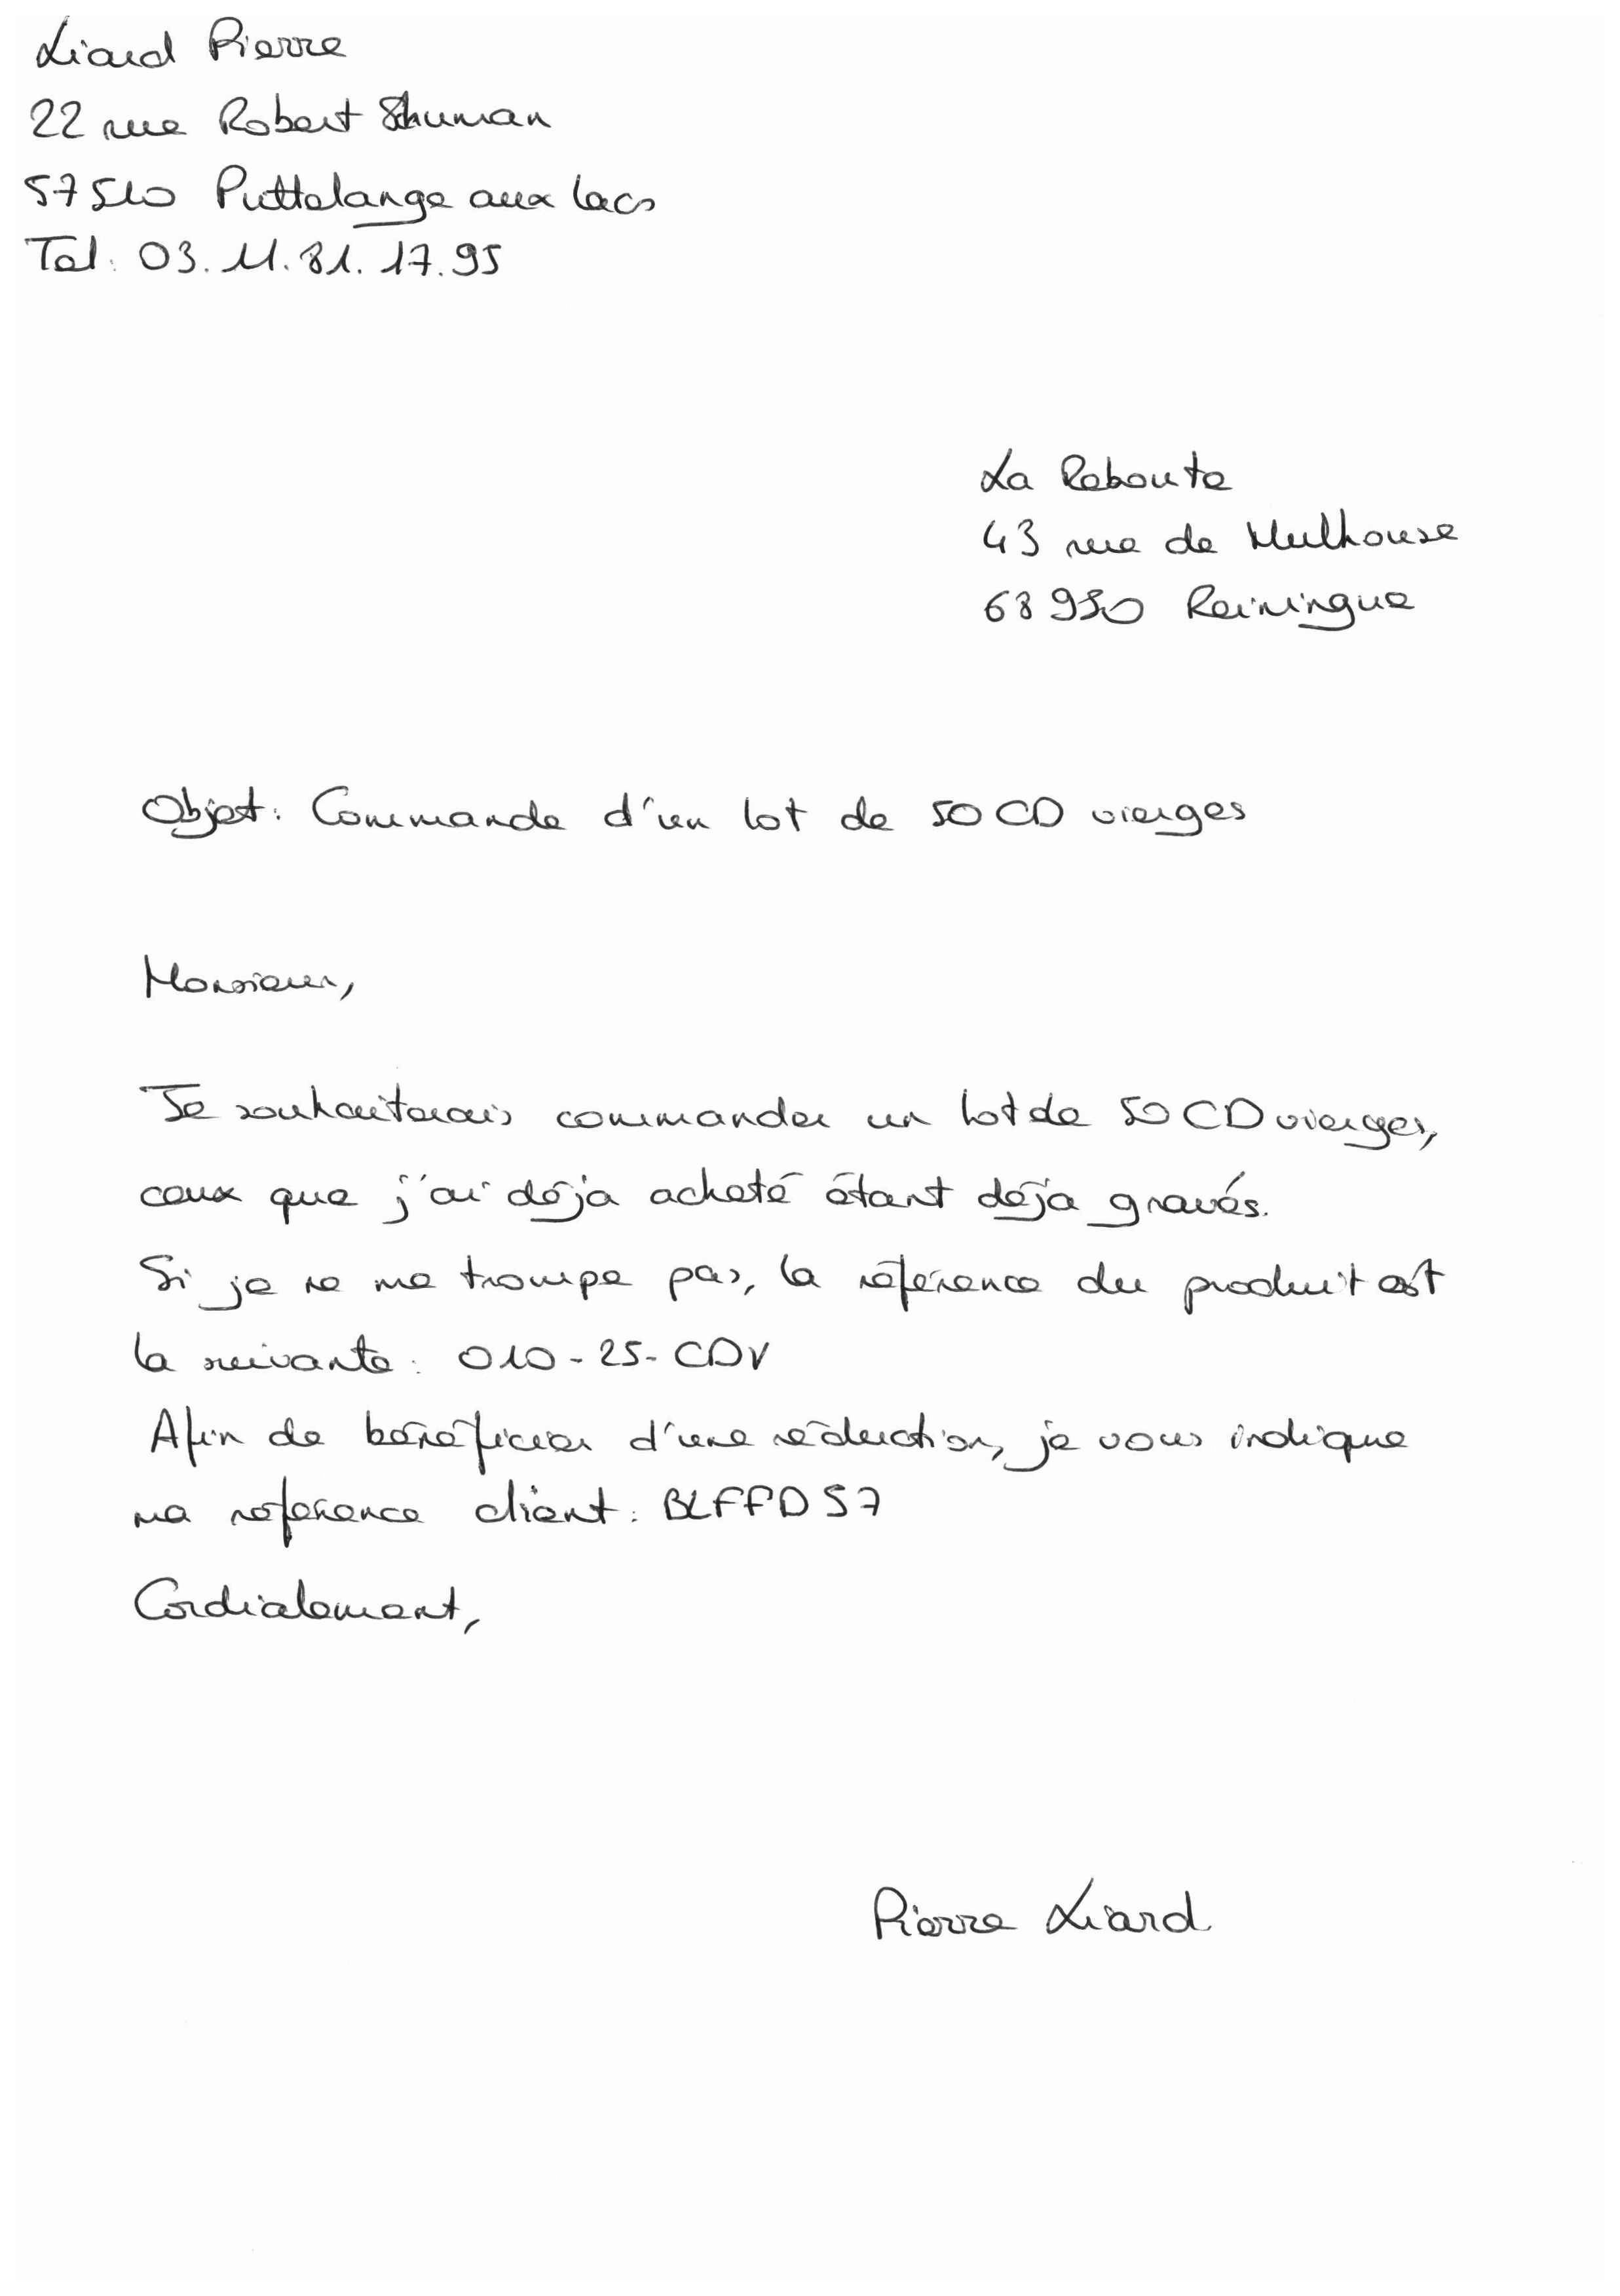 Liard Pierre
22 rue Robert Shuman
57510 Puttelange aux lacs
Tel: 03.11.81.17.95
La Reboute
43 rue de Mulhouse
68950 Reiningue
Objet: Commande d'un lot de 50 CD vierges
Monsieur,
Je souhaiterais commander un lot de 50 CD vierges,
ceux que j'ai déja acheté étant déja gravés.
Si je ne me trompe pas, la référence du produit est
la suivante: 010-25-CDV
Afin de bénéficier d'une réduction, je vous indique
ma référence client: BLFFD57
Cordialement,
Pierre Liard